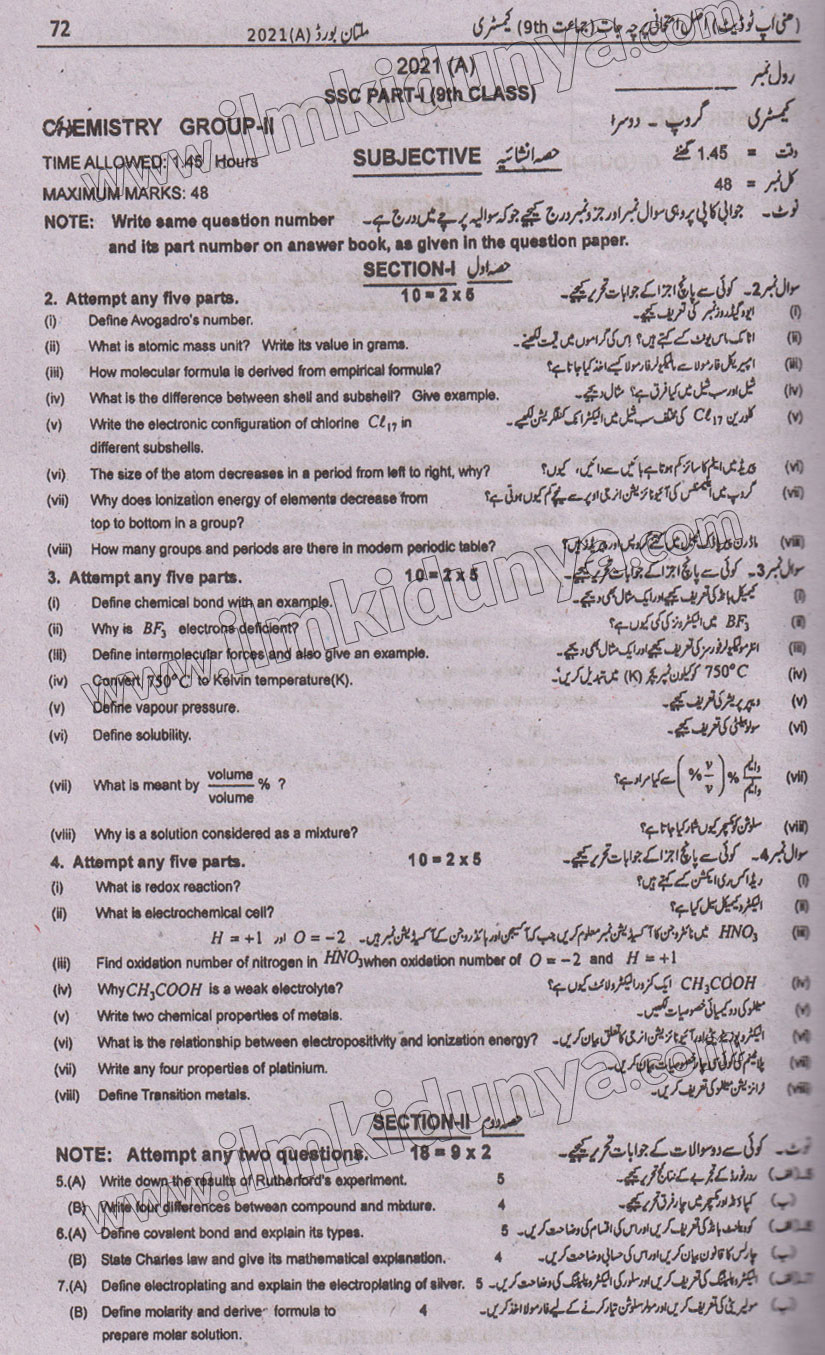 72 ملتان بورڈ 2021(A) (ھنی اپ ٹو ڈیٹ) اصل امتحانی پرچہ جات (جماعت 9th) کیمسٹری
2021 (A)
SSC PART-I (9th CLASS) رول نمبر
CHEMISTRY GROUP-II کیمسٹری گروپ ۔ دوسرا
TIME ALLOWED: 1.45 Hours SUBJECTIVE حصہ انشائیہ وقت = 1.45 گھنٹے
MAXIMUM MARKS: 48 کل نمبر = 48
NOTE: Write same question number نوٹ۔ جوابی کاپی پر وہی سوال نمبر اور جز نمبر درج کیجیے جو کہ سوالیہ پرچے میں درج ہے۔
and its part number on answer book, as given in the question paper.
SECTION-I حصہ اول
2. Attempt any five parts. 10 = 2 x 5 سوال نمبر 2۔ کوئی سے پانچ اجزا کے جوابات تحریر کیجیے۔
(i) Define Avogadro's number. ایووگیڈروز نمبر کی تعریف کیجیے۔ (i)
(ii) What is atomic mass unit? Write its value in grams. اٹامک ماس یونٹ کسے کہتے ہیں؟ اس کی گراموں میں قیمت لکھیے۔ (ii)
(iii) How molecular formula is derived from empirical formula? امپیریکل فارمولا سے مالیکیولر فارمولا کیسے اخذ کیا جاتا ہے؟ (iii)
(iv) What is the difference between shell and subshell? Give example. شیل اور سب شیل میں کیا فرق ہے؟ مثال دیجیے۔ (iv)
(v) Write the electronic configuration of chlorine Cℓ₁₇ in کلورین Cℓ₁₇ کی مختلف سب شیل میں الیکٹرانک کنفگریشن لکھیے۔ (v)
different subshells.
(vi) The size of the atom decreases in a period from left to right, why? پیریڈ میں ایٹم کا سائز کم ہوتا ہے بائیں سے دائیں، کیوں؟ (vi)
(vii) Why does ionization energy of elements decrease from گروپ میں ایلیمنٹس کی آئیونائزیشن انرجی اوپر سے نیچے کم کیوں ہوتی ہے؟ (vii)
top to bottom in a group?
(viii) How many groups and periods are there in modern periodic table? ماڈرن پیریاڈک ٹیبل میں کتنے گروپس اور پیریڈز ہیں؟ (viii)
3. Attempt any five parts. 10 = 2 x 5 سوال نمبر 3۔ کوئی سے پانچ اجزا کے جوابات تحریر کیجیے۔
(i) Define chemical bond with an example. کیمیکل بانڈ کی تعریف کیجیے اور ایک مثال بھی دیجیے۔ (i)
(ii) Why is BF₃ electrons deficient? BF₃ میں الیکٹرونز کی کمی کیوں ہے؟ (ii)
(iii) Define intermolecular forces and also give an example. انٹر مولیکیولر فورسز کی تعریف کیجیے اور ایک مثال بھی دیجیے۔ (iii)
(iv) Convert 750°C to Kelvin temperature(K). 750°C کو کیلون ٹمپریچر (K) میں تبدیل کریں۔ (iv)
(v) Define vapour pressure. ویپر پریشر کی تعریف کیجیے۔ (v)
(vi) Define solubility. سولوبیلٹی کی تعریف کیجیے۔ (vi)
(vii) What is meant by volume/volume % ? والیم/والیم % (v/v %) سے کیا مراد ہے؟ (vii)
(viii) Why is a solution considered as a mixture? سلوشن کو مکسچر کیوں شمار کیا جاتا ہے؟ (viii)
4. Attempt any five parts. 10 = 2 x 5 سوال نمبر 4۔ کوئی سے پانچ اجزا کے جوابات تحریر کیجیے۔
(i) What is redox reaction? ریڈاکس ری ایکشن کسے کہتے ہیں؟ (i)
(ii) What is electrochemical cell? الیکٹرو کیمیکل سیل کیا ہے؟ (ii)
HNO₃ میں نائٹروجن کا آکسیڈیشن نمبر معلوم کریں جب کہ آکسیجن اور ہائڈروجن کے آکسیڈیشن نمبر ہیں۔ O = −2 اور H = +1 (iii)
(iii) Find oxidation number of nitrogen in HNO₃ when oxidation number of O = −2 and H = +1
(iv) Why CH₃COOH is a weak electrolyte? CH₃COOH ایک کمزور الیکٹرولائٹ کیوں ہے؟ (iv)
(v) Write two chemical properties of metals. میٹلز کی دو کیمیائی خصوصیات لکھیں۔ (v)
(vi) What is the relationship between electropositivity and ionization energy? الیکٹرو پوزیٹیویٹی اور آئیونائزیشن انرجی کا تعلق بیان کریں۔ (vi)
(vii) Write any four properties of platinium. پلاٹینم کی کوئی سی چار خصوصیات بیان کریں۔ (vii)
(viii) Define Transition metals. ٹرانزیشن میٹلز کی تعریف کریں۔ (viii)
SECTION-II حصہ دوم
NOTE: Attempt any two questions. 18 = 9 x 2 نوٹ۔ کوئی سے دو سوالات کے جوابات تحریر کیجیے۔
5.(A) Write down the results of Rutherford's experiment. 5 ردرفورڈ کے تجربے کے نتائج تحریر کیجیے۔
(B) Write four differences between compound and mixture. 4 کمپاؤنڈ اور مکسچر میں چار فرق تحریر کیجیے۔ (ب)
6.(A) Define covalent bond and explain its types. 5 کوویلنٹ بانڈ کی تعریف کریں اور اس کی اقسام کی وضاحت کریں۔
(B) State Charles law and give its mathematical explanation. 4 چارلس کا قانون بیان کریں اور اس کی حسابی وضاحت کریں۔ (ب)
7.(A) Define electroplating and explain the electroplating of silver. 5 الیکٹروپلیٹنگ کی تعریف کریں اور سلور کی الیکٹروپلیٹنگ کی وضاحت کریں۔
(B) Define molarity and derive formula to 4 مولیریٹی کی تعریف کریں اور مولر سلوشن تیار کرنے کے لیے فارمولا اخذ کریں۔ (ب)
prepare molar solution.
www.ilmkidunya.com
www.ilmkidunya.com
www.ilmkidunya.com